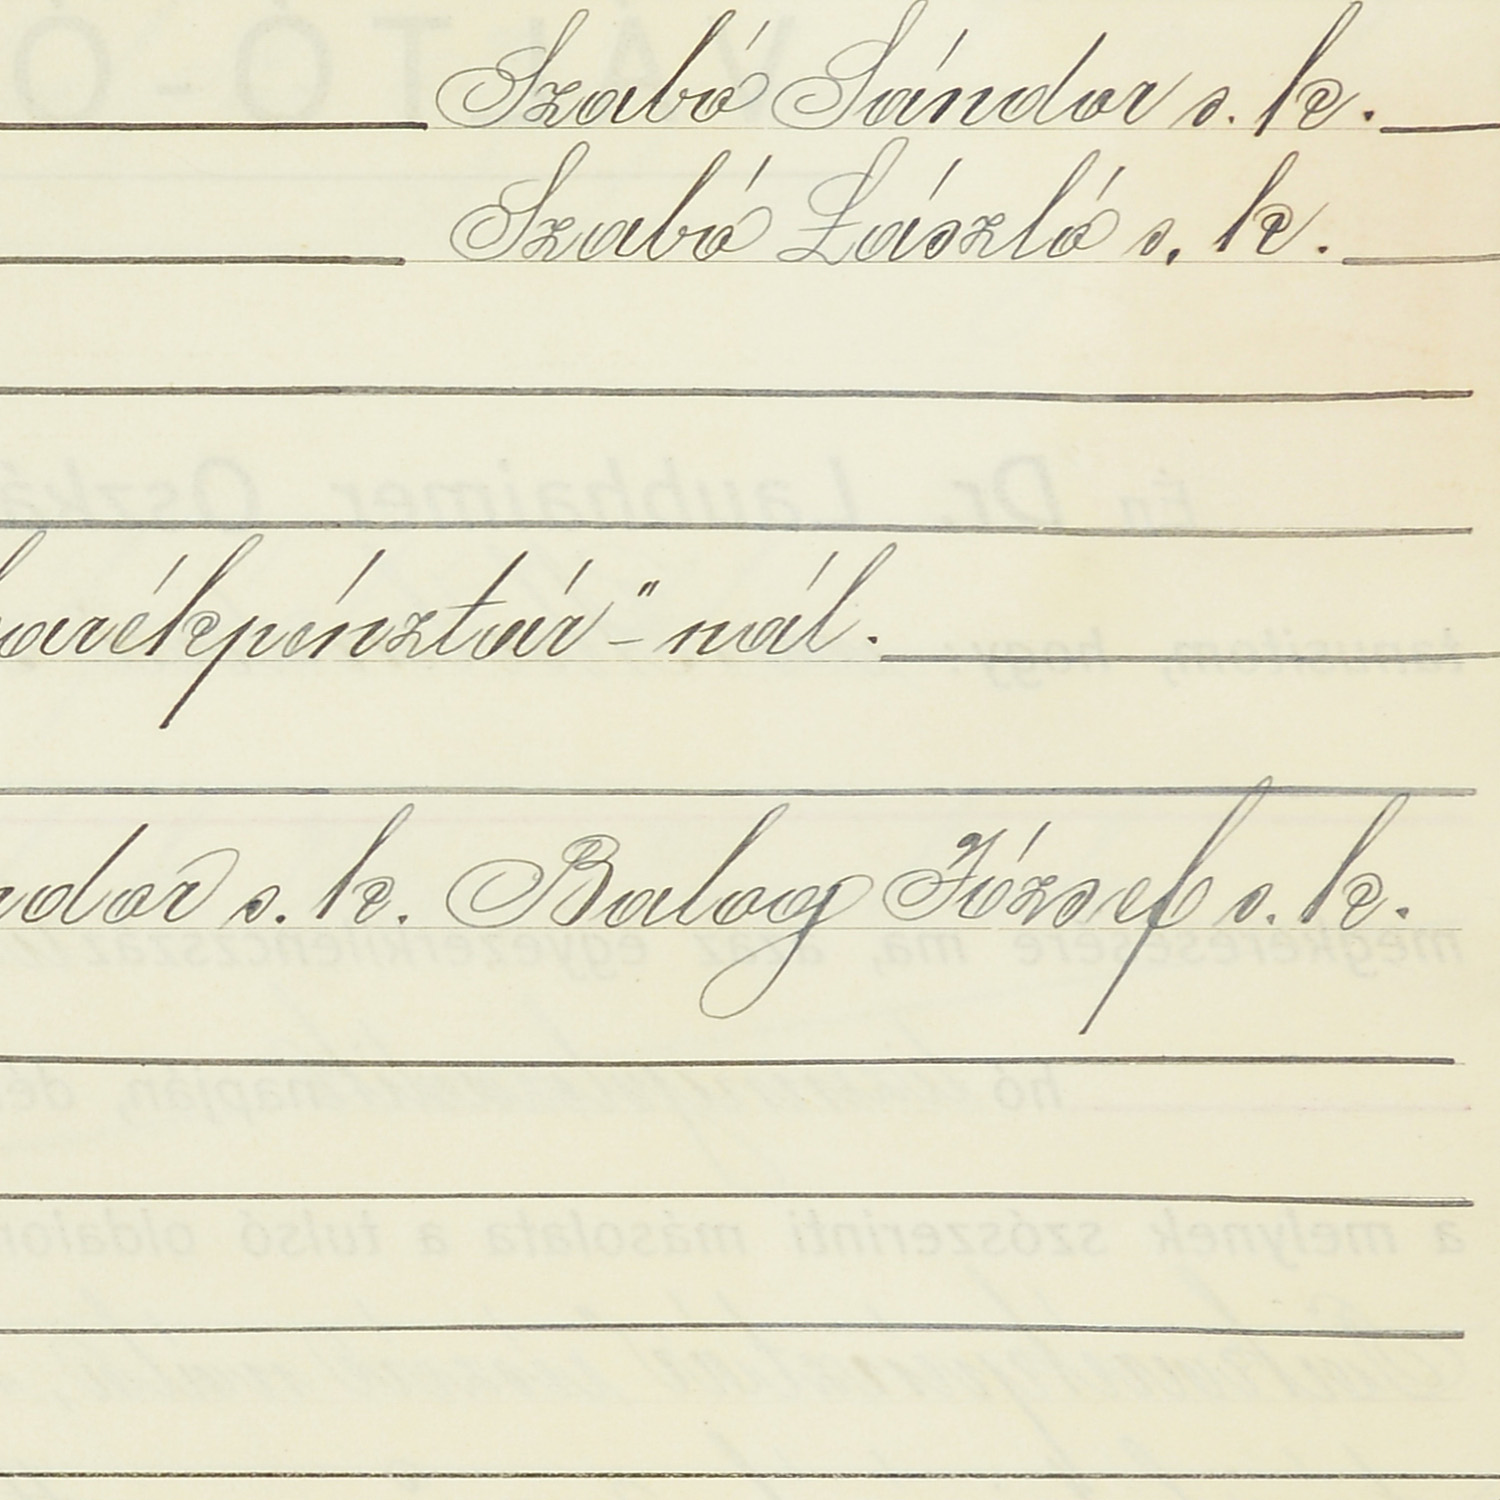 Szabó Sándor s. k.
Szabó László s. k.
arékpénztár"-nál.
ndor s. k. Balog József s. k.